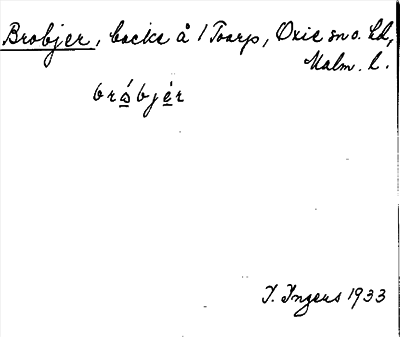 Brobjer, backe å 1 Toarp, Oxie sn o. hd,
Malm. l.
bråbjér
I. Ingers 1933